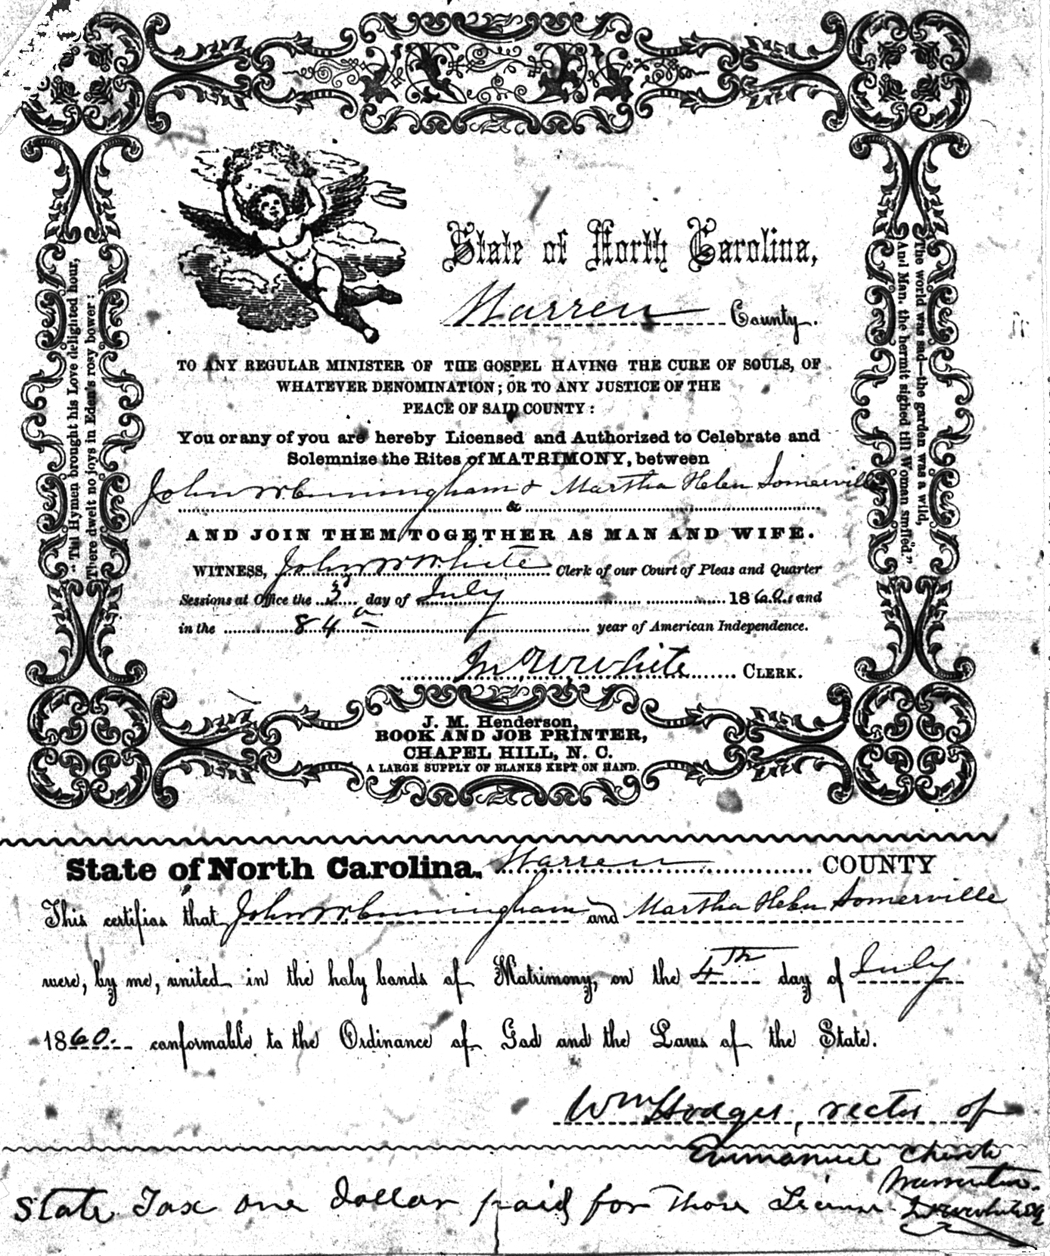 State of North Carolina,
Warren County.
TO ANY REGULAR MINISTER OF THE GOSPEL HAVING THE CURE OF SOULS, OF
WHATEVER DENOMINATION; OR TO ANY JUSTICE OF THE
PEACE OF SAID COUNTY:
You or any of you are hereby Licensed and Authorized to Celebrate and
Solemnize the Rites of MATRIMONY, between
John W Cunningham & Martha Helen Somerville
&
AND JOIN THEM TOGETHER AS MAN AND WIFE.
WITNESS, John W White Clerk of our Court of Pleas and Quarter
Sessions at Office the 3 day of July 1860, and
in the 84th year of American Independence.
Jno W White CLERK.
"Till Hymen brought his Love delighted hour,
There dwelt no joys in Eden's rosy bower:
The world was sad—the garden was a wild,
And Man, the hermit sighed till Woman smiled."
J. M. Henderson,
BOOK AND JOB PRINTER,
CHAPEL HILL, N. C.
A LARGE SUPPLY OF BLANKS KEPT ON HAND.
State of North Carolina. Warren COUNTY
This certifies that John W. Cunningham and Martha Helen Somerville
were, by me, united in the holy bands of Matrimony, on the 4th day of July
1860. conformable to the Ordinance of God and the Laws of the State.
Wm Hodges, rector of
Emmanuel Church
Warrenton.
State Tax one dollar paid for This License